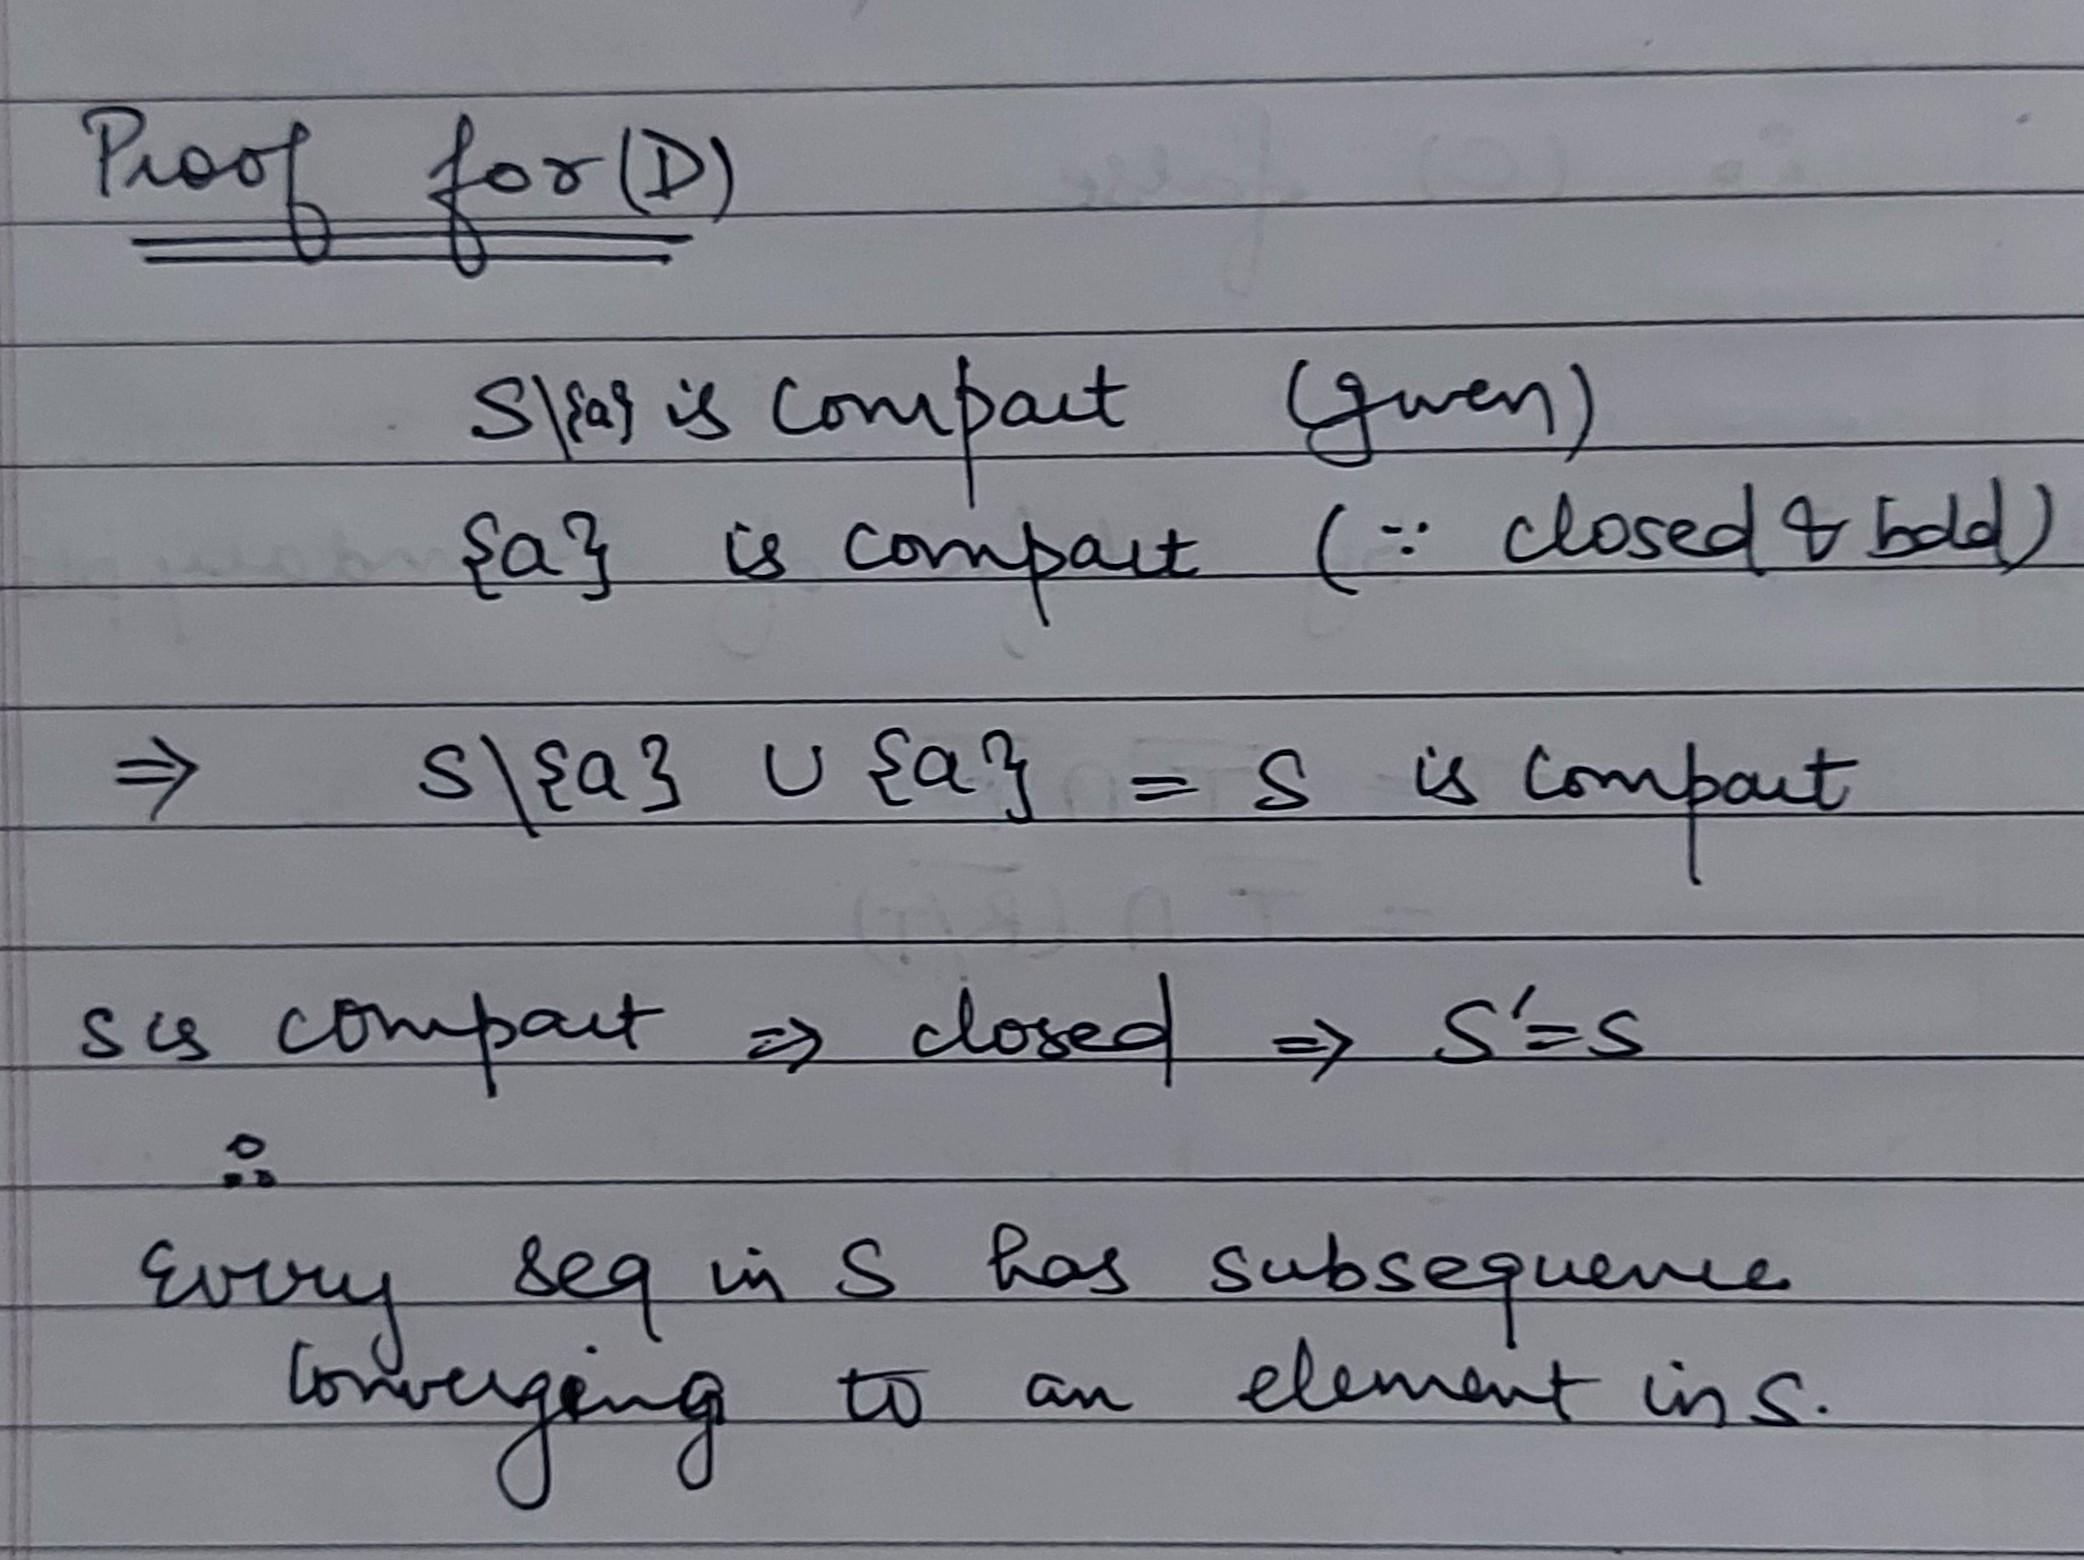 Proof for (D)
S\{a} is compact (given)
{a} is compact (∵ closed & bdd)
⇒ S\{a} ∪ {a} = S is compact
S is compact ⇒ closed ⇒ S'=S
∴
Every seq in S has subsequence
converging to an element in S.